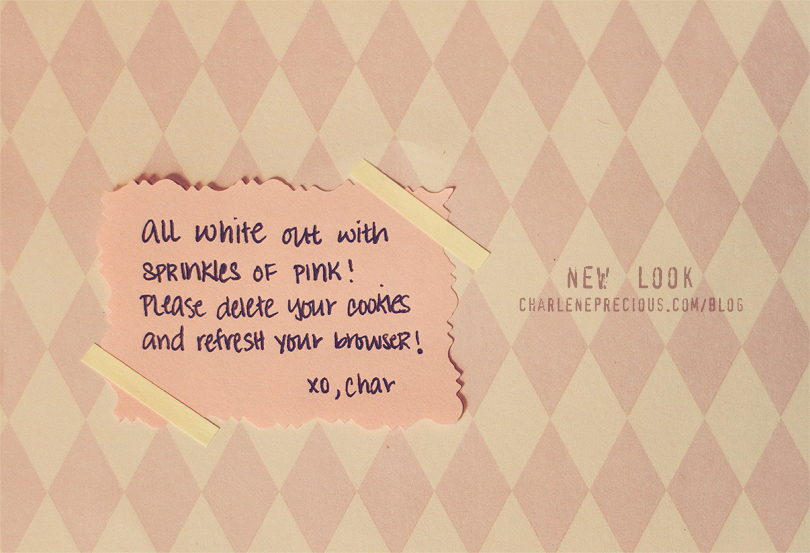 all white out with
SPRiNKles OF PiNK!
Please delete your cookies
and refresh your browser!
xo, char
NEW LOOK
CHARLENEPRECIOUS.COM/BLOG